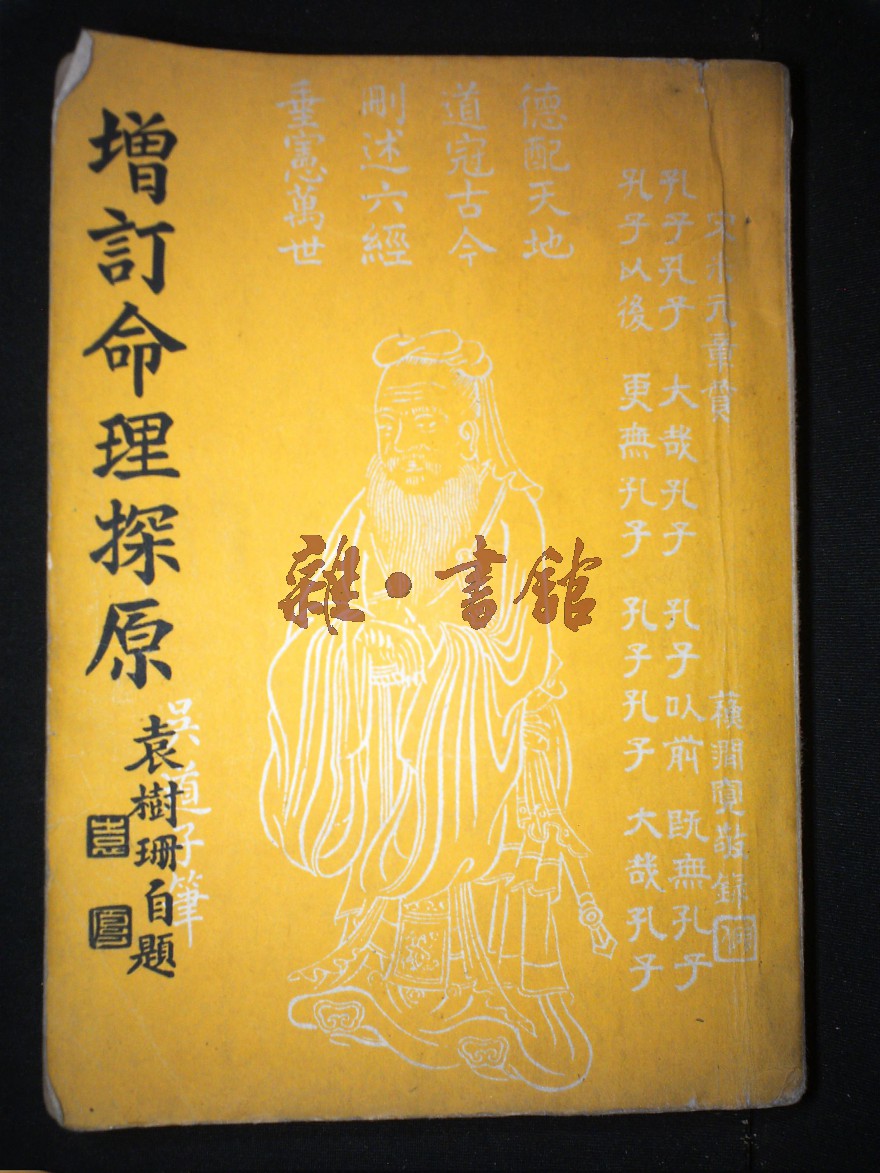 宋米元章贊
蘓澗寬敬錄
孔子孔子 大哉孔子 孔子以前 既無孔子
孔子以後 更無孔子 孔子孔子 大哉孔子
德配天地
道冠古今
刪述六經
垂憲萬世
吳道子筆
增訂命理探原
袁樹珊自題
雜·書館